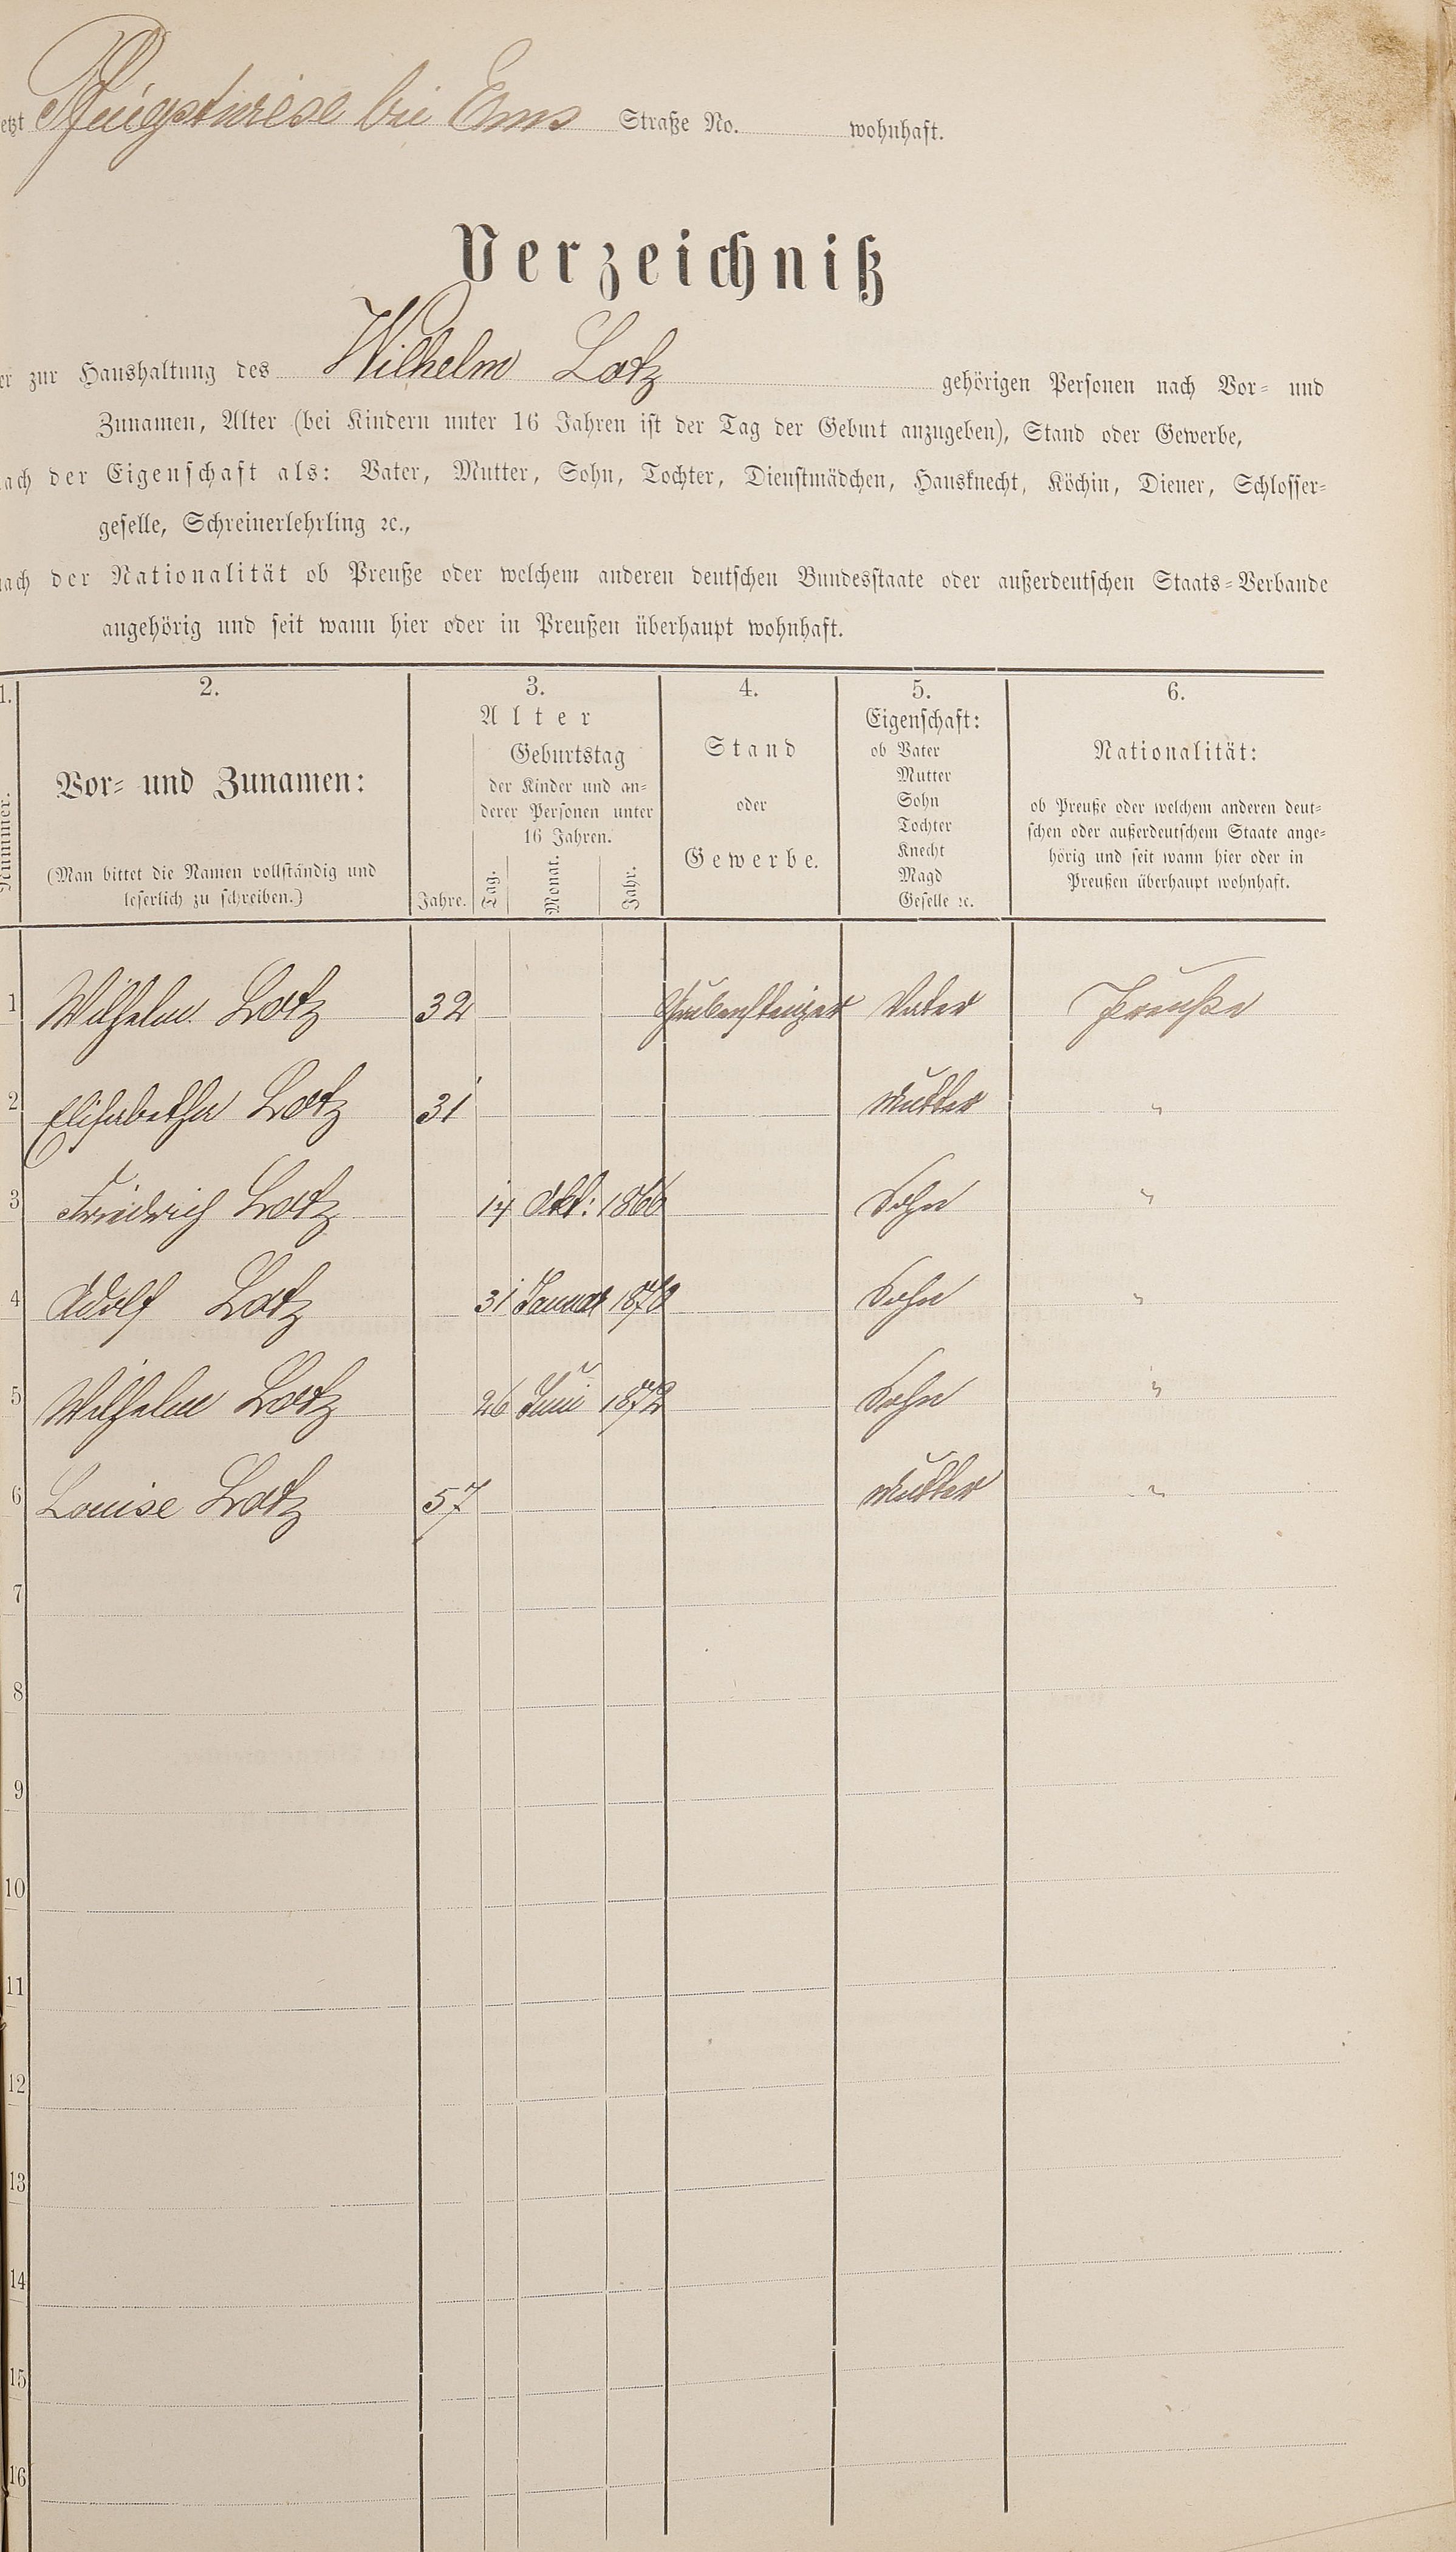 etzt Pfingstwiese bei Ems Straße No. wohnhaft.
Verzeichniß
er zur Haushaltung des Wilhelm Lotz gehörigen Personen nach Vor- und
Zunamen, Alter (bei Kindern unter 16 Jahren ist der Tag der Geburt anzugeben), Stand oder Gewerbe,
nach der Eigenschaft als: Vater, Mutter, Sohn, Tochter, Dienstmädchen, Hausknecht, Köchin, Diener, Schlosser-
geselle, Schreinerlehrling ꝛc.,
nach der Nationalität ob Preuße oder welchem anderen deutschen Bundesstaate oder außerdeutschen Staats-Verbande
angehörig und seit wann hier oder in Preußen überhaupt wohnhaft.
1. 2. 3. 4. 5. 6.
Nummer.
Vor- und Zunamen:
(Man bittet die Namen vollständig und
leserlich zu schreiben.)
Alter
Jahre.
Geburtstag
der Kinder und an-
derer Personen unter
16 Jahren.
Tag. Monat. Jahr.
Stand
oder
Gewerbe.
Eigenschaft:
ob Vater
Mutter
Sohn
Tochter
Knecht
Magd
Geselle ꝛc.
Nationalität:
ob Preuße oder welchem anderen deut-
schen oder außerdeutschem Staate ange-
hörig und seit wann hier oder in
Preußen überhaupt wohnhaft.
1 Wilhelm Lotz 32 Grubensteiger Vater Preuße
2 Elisabetha Lotz 31 Mutter "
3 Friedrich Lotz 14 Okt: 1866 Sohn "
4 Adolf Lotz 31 Januar 1870 Sohn "
5 Wilhelm Lotz 26 Juni 1872 Sohn "
6 Louise Lotz 57 Mutter "
7
8
9
10
11
12
13
14
15
16